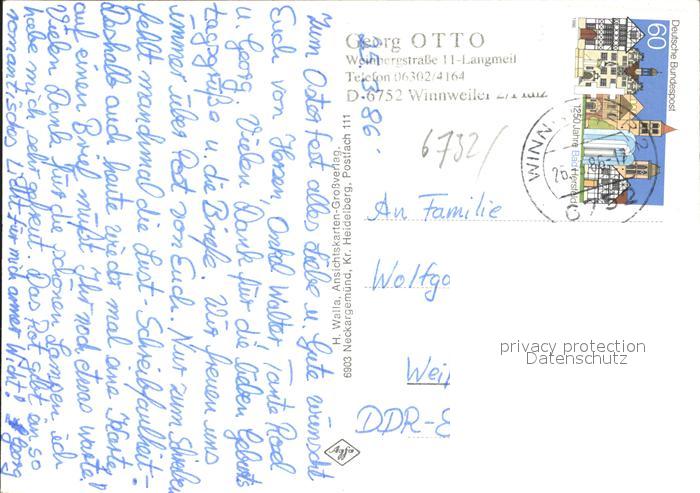 24.3.86.
Zum Osterfest alles Liebe u. Gute wünscht
Euch von Herzen, Onkel Walter, Tante Rosel
u. Georg. Vielen Dank für die lieben Geburts
tagsgrüße u. die Briefe. Wir freuen uns
immer über Post von Euch. Nur zum Schreiben
fehlt manchmal die Lust - Schreibfaulheit -
Deshalb auch heute wieder mal eine Karte,
auf einen Brief müßt Ihr noch etwas warten!
Vielen Dank für die schönen Lampen, ich
habe mich sehr gefreut. Das Rot gibt ein so
romantisches Licht für mich armen Wicht! Georg
H. Walla, Ansichtskarten-Großverlag,
6903 Neckargemünd, Kr. Heidelberg, Postfach 111
Agfa
Georg OTTO
Weinbergstraße 11-Langmeil
Telefon 06302/4164
D-6752 Winnweiler 2/Pfalz
6732/
Deutsche Bundespost
60
1250 Jahre Bad Hersfeld
WINN
An Familie
Wolfga
Wei
DDR-
privacy protection
Datenschutz